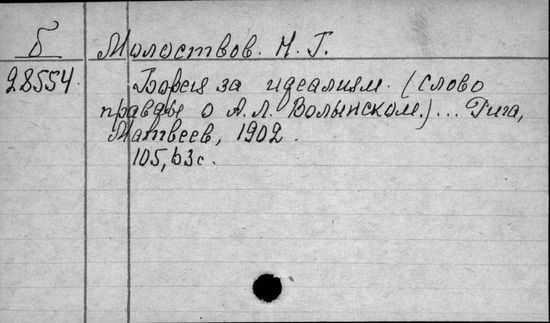 Б
28554.
Молоствов. Н. Г.
Борец за идеализм. (Слово
правды о А. Л. Волынском.)... Рига,
Матвеев, 1902.
105, 63 с.